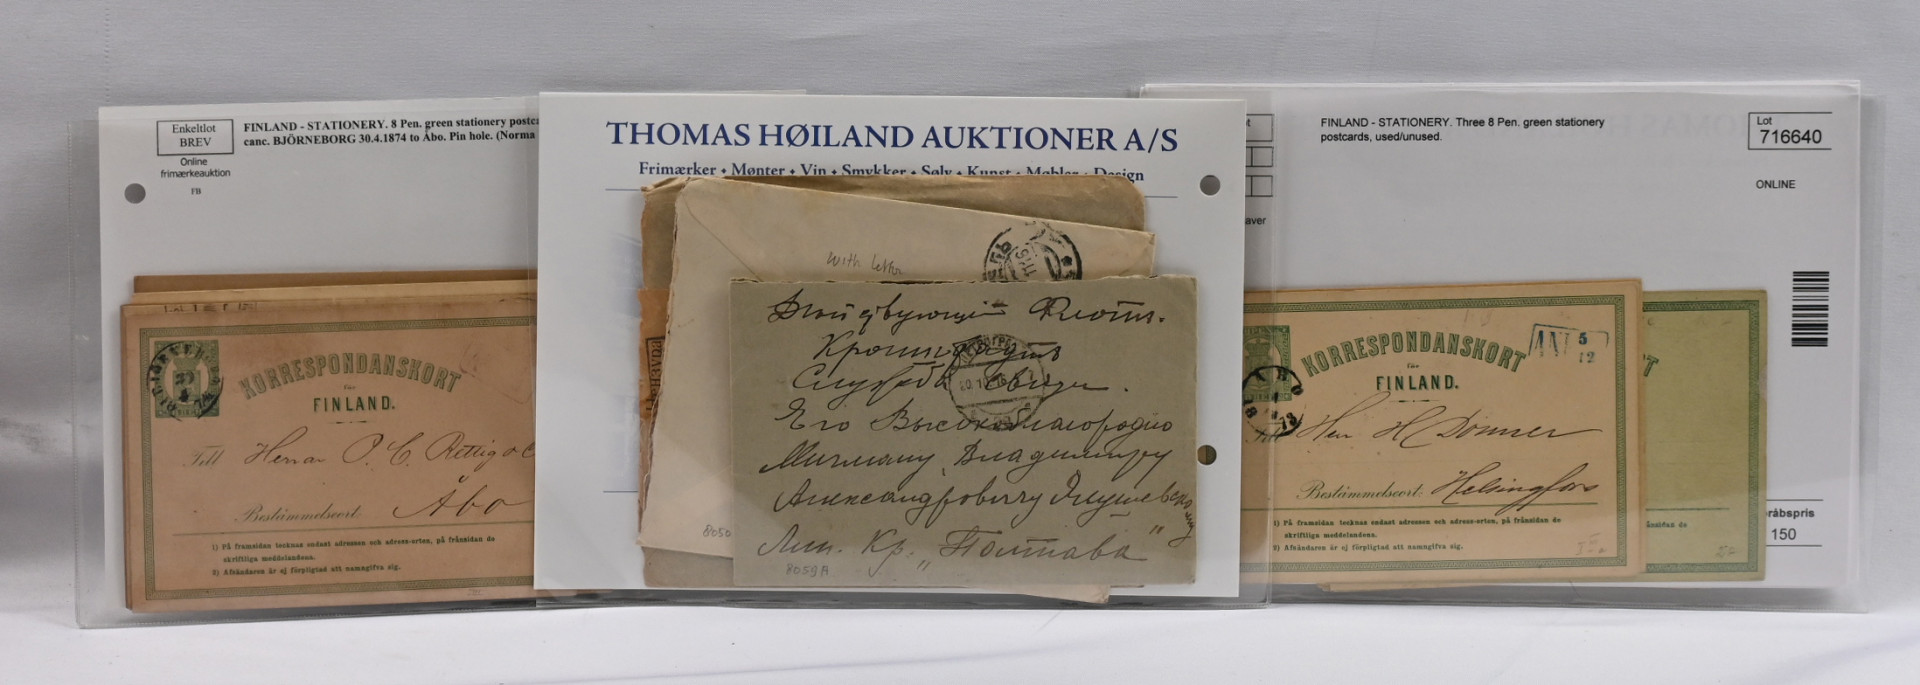 Enkeltlot
BREV
Online
frimærkeauktion
FB
FINLAND - STATIONERY. 8 Pen. green stationery postca
canc. BJÖRNEBORG 30.4.1874 to Åbo. Pin hole. (Norma
KORRESPONDANSKORT
för
FINLAND.
Till Herrar P. C. Rettig & C
Bestämmelseort: Åbo
1) På framsidan tecknas endast adressen och adress-orten, på frånsidan de
skriftliga meddelandena.
2) Afsändaren är ej förpligtad att namngifva sig.
THOMAS HØILAND AUKTIONER A/S
Frimærker • Mønter • Vin • Smykker • Sølv • Kunst • Møbler • Design
with letter
8050
Кронштадтъ
Его Высокоблагородію
Мичману Владиміру
Александровичу
Лин. Кр. "Полтава"
8059A
FINLAND - STATIONERY. Three 8 Pen. green stationery
postcards, used/unused.
Lot
716640
ONLINE
aver
KORRESPONDANSKORT
för
FINLAND.
ANK 5
12
Till Herr H Donner
Bestämmelseort: Helsingfors
1) På framsidan tecknas endast adressen och adress-orten, på frånsidan de
skriftliga meddelandena.
2) Afsändaren är ej förpligtad att namngifva sig.
frånsidan de
råbspris
150